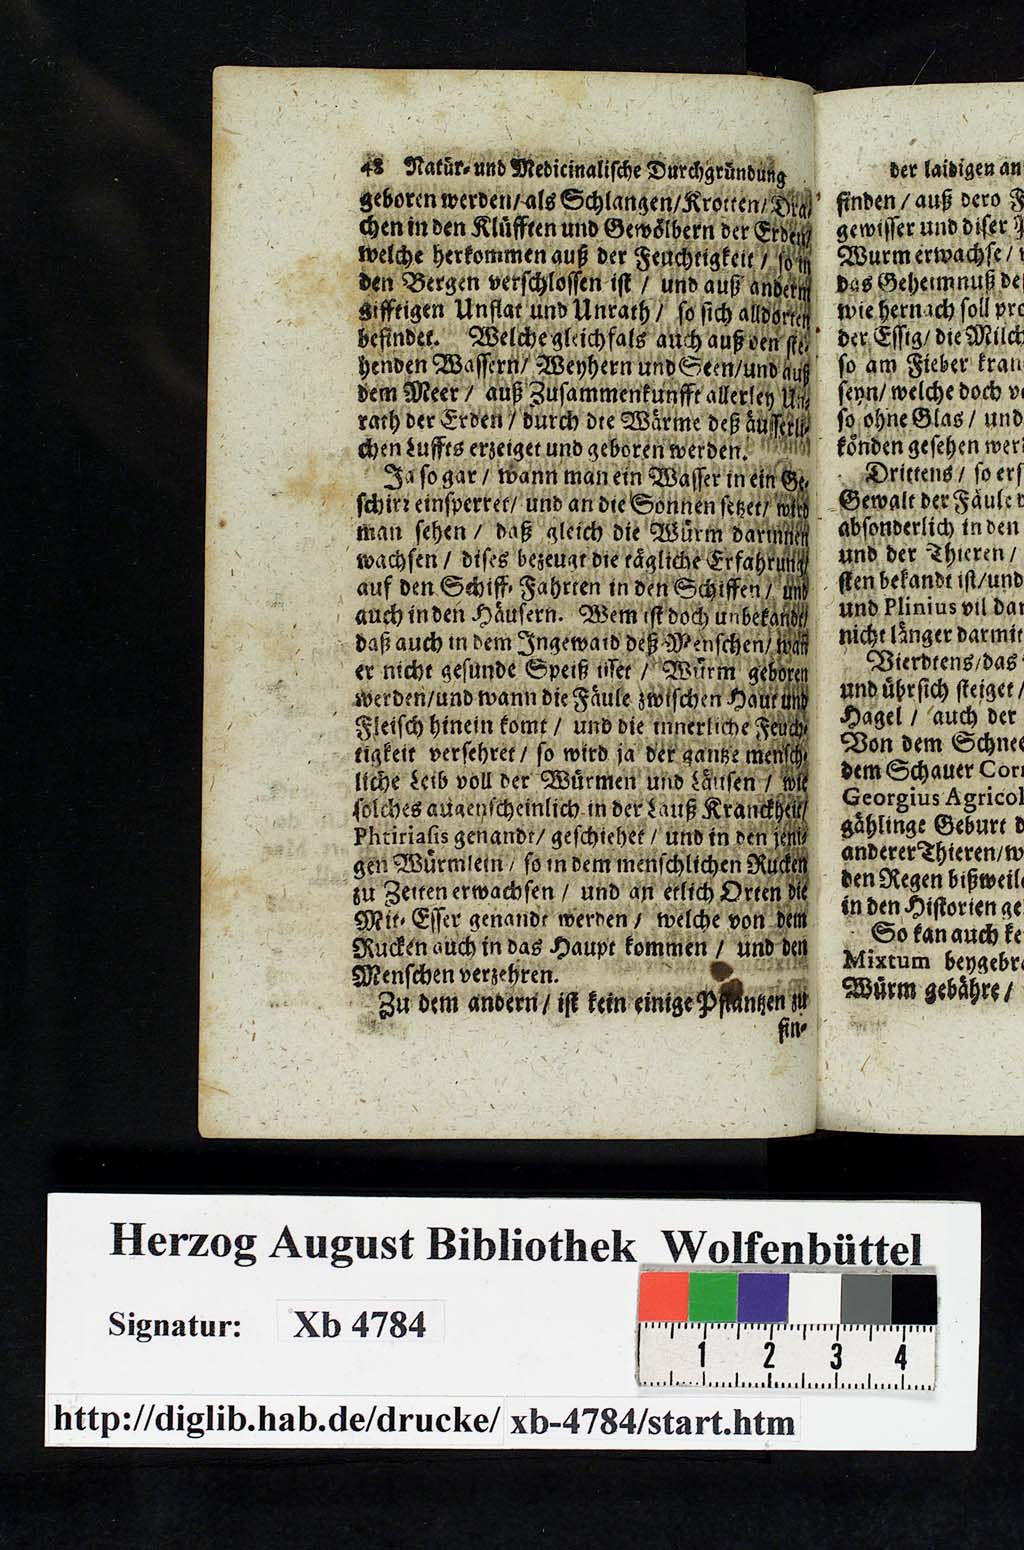 48 Natür- und Medicinalische Durchgründung
geboren werden/ als Schlangen/ Krotten/ Dra-
chen in den Klüfften und Gewölbern der Erden/
welche herkommen auß der Feuchtigkeit / so in
den Bergen verschlossen ist / und auß anderm
gifftigen Unflat und Unrath / so sich alldorten
befindet. Welche gleichfals auch auß den ste-
henden Wassern/ Weyhern und Seen/ und auß
dem Meer / auß Zusammenkunfft allerley Un-
rath der Erden / durch die Wärme deß äusserli-
chen Luffts erzeiget und geboren werden.
Ja so gar / wann man ein Wasser in ein Ge-
schirr einsperret/ und an die Sonnen setzet/ wird
man sehen / daß gleich die Würm darinnen
wachsen / dises bezeugt die tägliche Erfahrung/
auf den Schiff-Fahrten in den Schiffen / und
auch in den Häusern. Wem ist doch unbekandt/
daß auch in dem Ingewaid deß Menschen/ wañ
er nicht gesunde Speiß isset / Würm geboren
werden/ und wann die Fäule zwischen Haut und
Fleisch hinein komt / und die innerliche Feuch-
tigkeit versehret / so wird ja der gantze mensch-
liche Leib voll der Würmen und Läusen / wie
solches augenscheinlich in der Lauß Kranckheit/
Phtiriasis genandt/ geschiehet / und in den jeni-
gen Würmlein / so in dem menschlichen Rucken
zu Zeiten erwachsen / und an etlich Orten die
Mit-Esser genandt werden / welche von dem
Rucken auch in das Haupt kommen / und den
Menschen verzehren.
Zu dem andern / ist kein einige Pflantzen zu
fin-
der laidigen an
finden / auß dero
gewisser und diser
Wurm erwachse /
das Geheimnuß
wie hernach soll
der Essig/ die Milch
so am Fieber
seyn/ welche doch
so ohne Glas / und
könden gesehen
Drittens / so
Gewalt der Fäule
absonderlich in den
und der Thieren /
sten bekandt ist/ und
und Plinius vil
nicht länger darmit
Vierdtens/ das
und übrsich steiget /
Hagel / auch der
Von dem Schnee
dem Schauer
Georgius Agricol
gählinge Geburt
anderer Thieren/
den Regen bißweile
in den Historien
So kan auch
Mixtum beygebra
Würm gebähre /
Herzog August Bibliothek Wolfenbüttel
Signatur: Xb 4784
1 2 3 4
http://diglib.hab.de/drucke/ xb-4784/start.htm